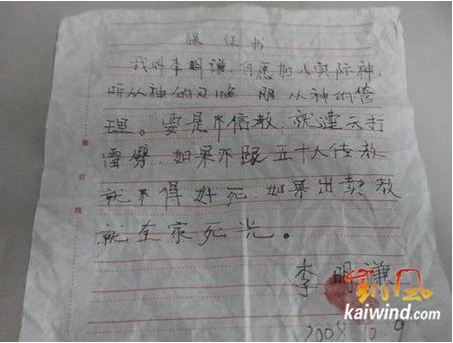 保证书
我叫李明谦,自愿加入实际神,
听从神的 服从神的管
理。要是不信教,就遭天打
雷劈,如果不跟五十人传教
就不得好死,如果出卖教
就全家死光。
李明谦
2008.10.9
凯风
kaiwind.com